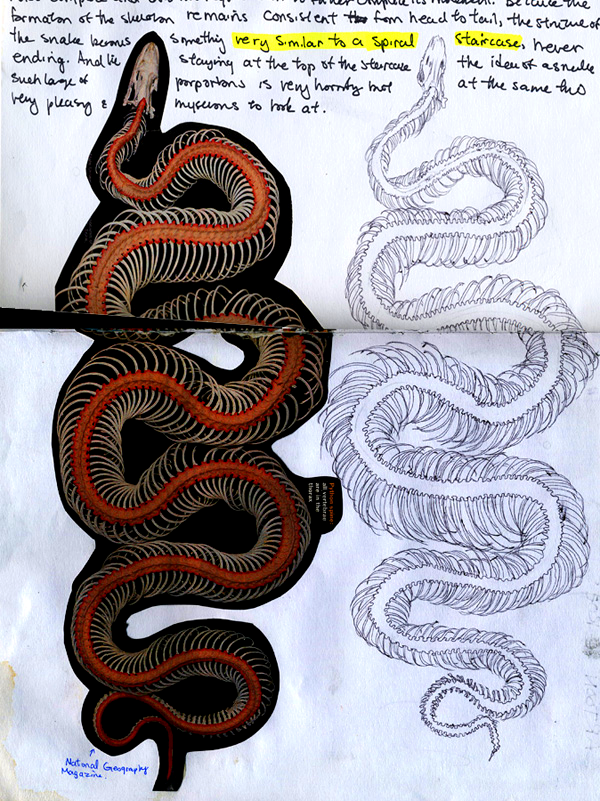 formation of the skeleton remains consistent from head to tail, the structure of
the snake becomes something very similar to a spiral staircase, never
ending. And like staying at the top of the staircase the idea of a snake
such large of porportions is very horrify but at the same time
very pleasing & mysterious to look at.
Python spine:
all vertebrae
are in the
thorax
National Geography
Magazine.